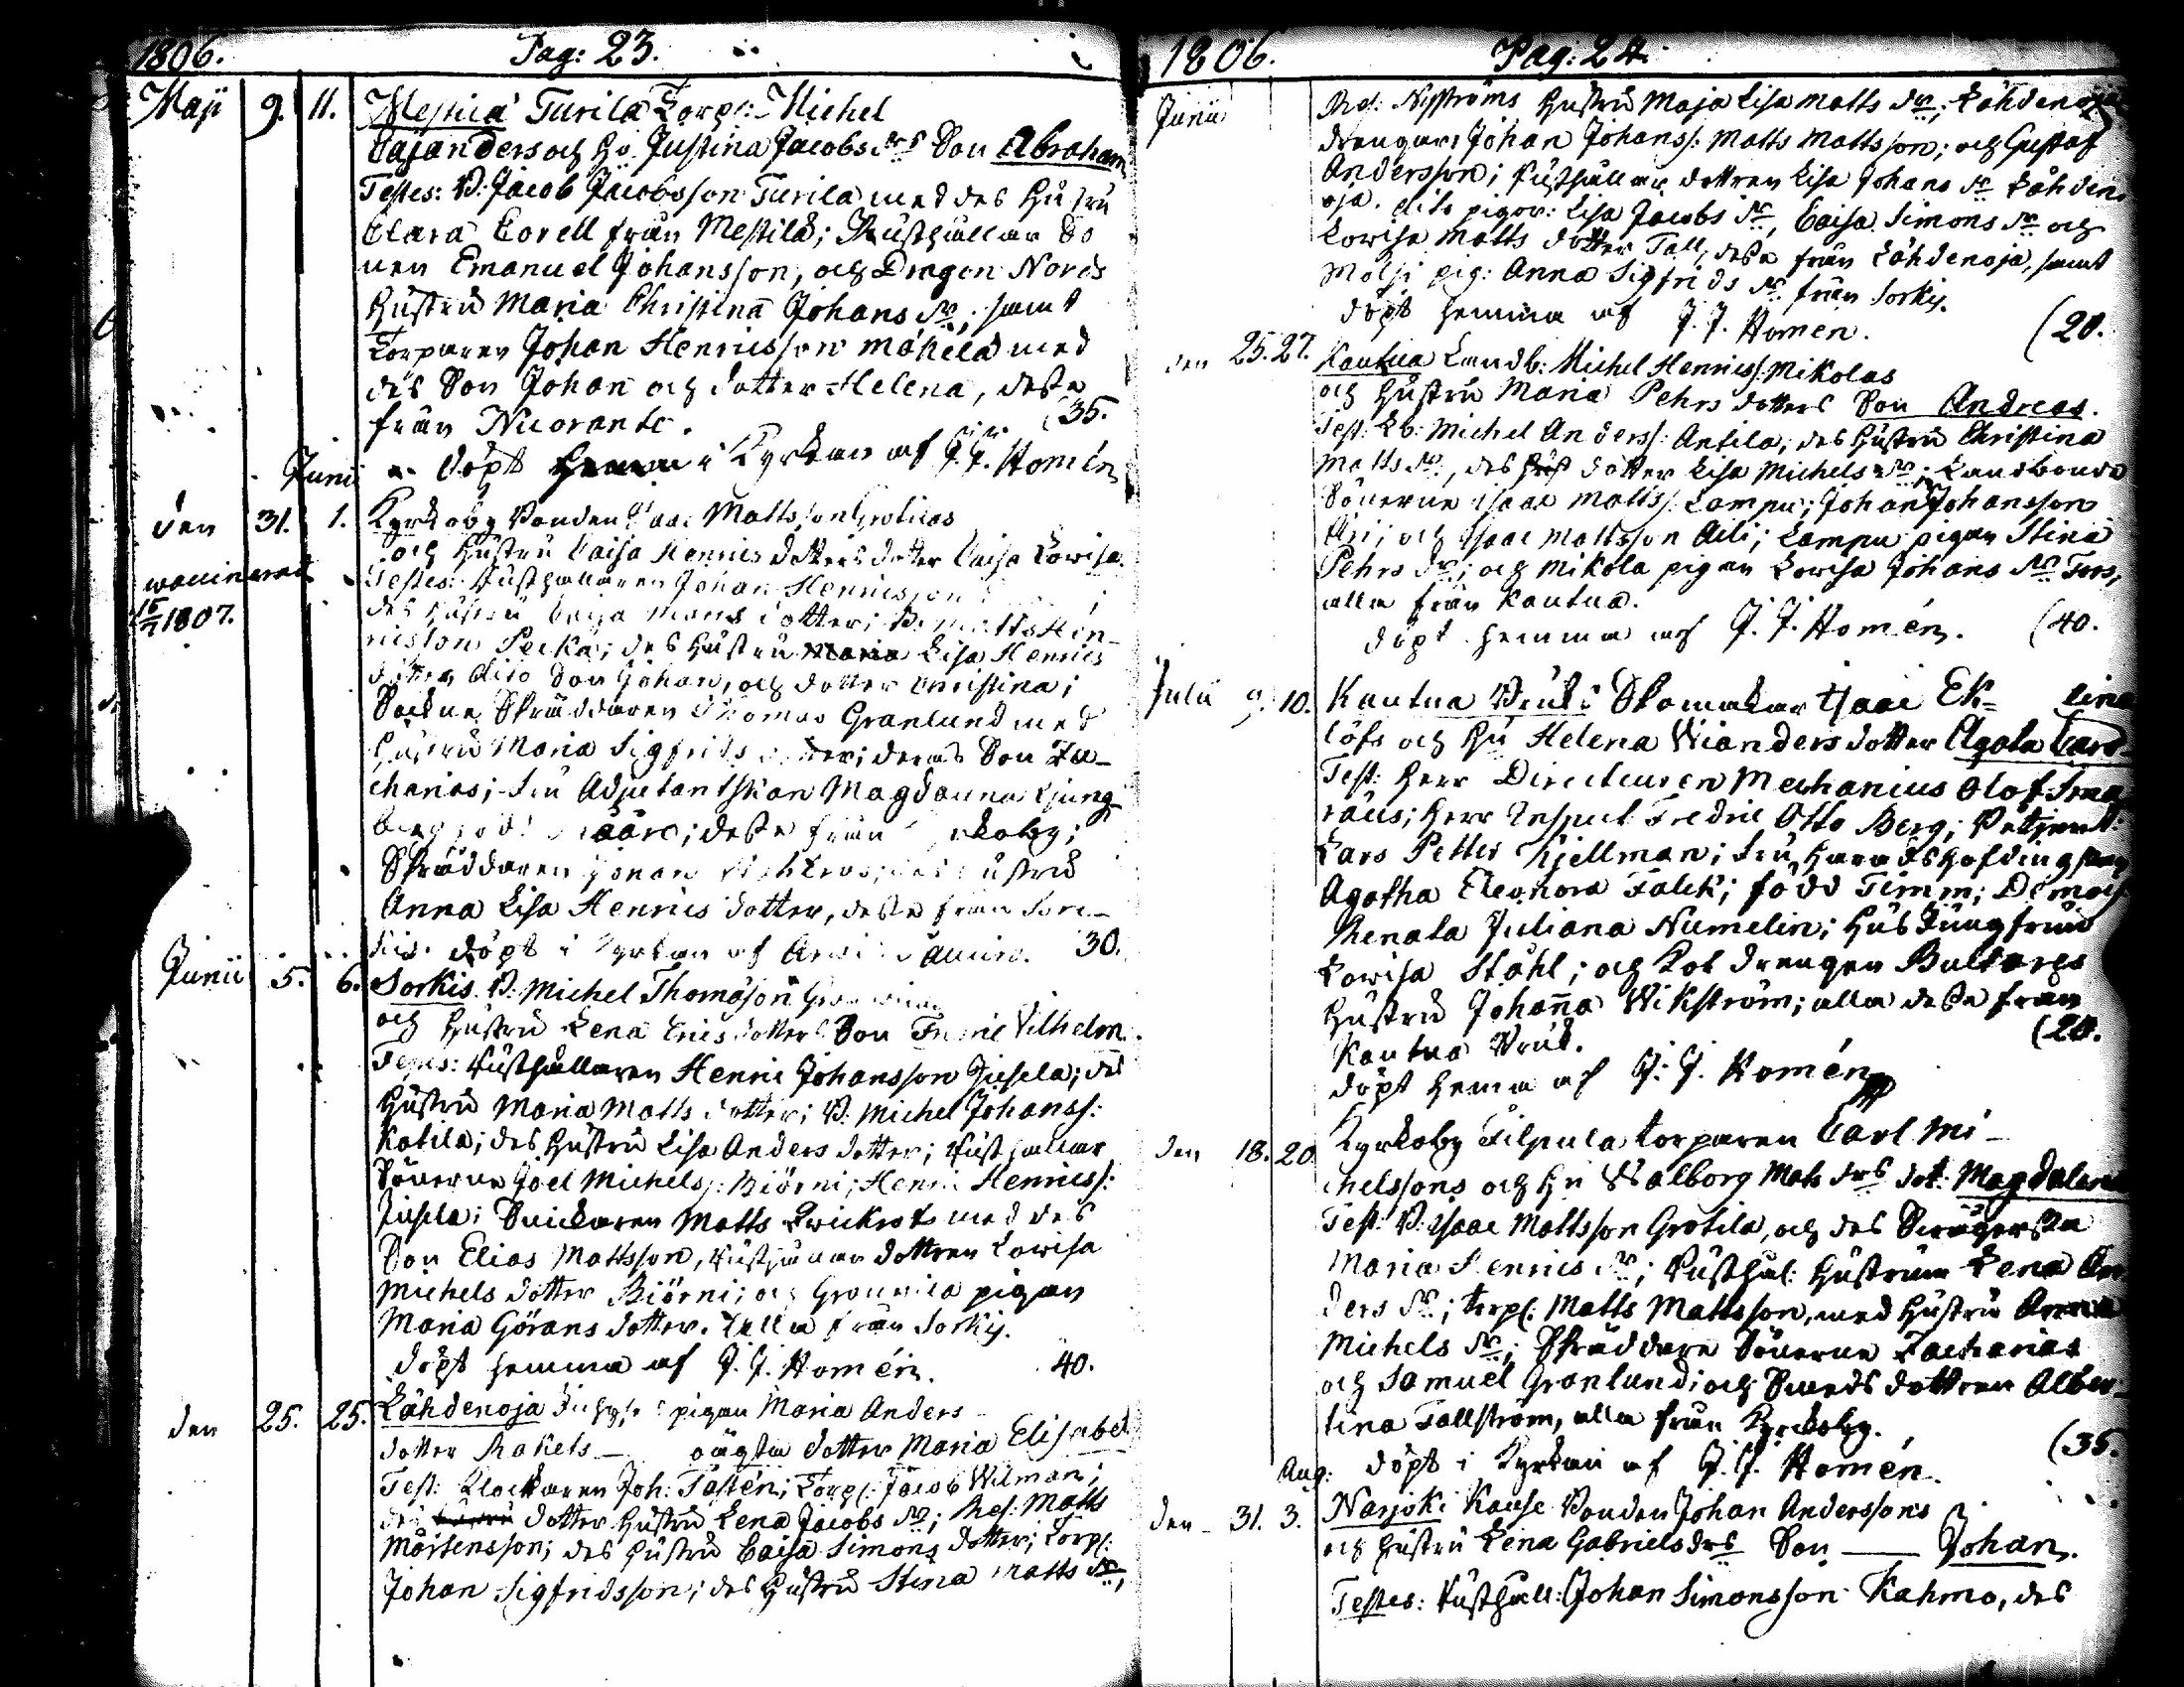 1806. Pag: 23.
Maji 9. 11. Mestilä Turila Torp: Michel
Cajanders och Hu Justina Jacobs drs Son Abraham
Testes: B: Jacob Jacobsson Turila med des Hustru
Clara Corell från Mestilä; Rusthållar So
nen Emanuel Johansson, och Dragon Nords
Hustru Maria Christina Johans dr; samt
Torparen Johan Henricsson Mäkelä med
des Son Johan och dotter Helena, desse
från Nuorante. (35.
Junii döpt i Kyrkan af J. J. Homén
den 31. 1. Kyrkoby Bonden Isaac Mattsson Grotilas
och Hustru Caisa Henrics dotters dotter Caisa Lowisa.
vaccinerad
15/7 1807.
Testes: Rusthållaren Johan Henricsson
des Hustru Caisa Mats dotter; B. Matts Hen-
ricsson Pecka; des Hustru Lisa Henrics
dotter dito Son Johan, och dotter Christina;
Sockne Skräddaren Thomas Granlund med
Hustru Maria Sigfrids dotter; deras Son Za-
charias; Fru Adjutantskan Magdauna Ljung
berg född; desse från Kyrkoby;
Skräddaren Johan; des Hustru
Anna Lisa Henrics dotter, desse från Sor-
kis. döpt i Kyrkan af 30.
Junii 5. 6. Sorkis B: Michel Thomasson
och Hustru Lena Erics dotters Son Fredric Vilhelm.
Testes: Rusthållaren Henric Johansson Jusela; des
Hustru Maria Matts dotter; B. Michel Johanss:
Katila; des Hustru Lisa Anders dotter; Rusthållar
Sönerne Joel Michelss: Biörni; Henric Henricss:
Jusela; Snickaren Matts Qvickrot med des
Son Elias Mattsson, Rusthållar dottren Lowisa
Michels dotter Biörni; och pigan
Maria Görans dotter. alla från Sorkis.
döpt hemma af J. J. Homén. 40.
den 25. 25. Lähdenoja pigan Maria Anders
dotter Rakels — oägta dotter Maria Elisabet
Test: Klockaren Joh: Tastén; Torp: Jacob Wilman;
des dotter Hustru Lena Jacobs dr; Res: Matts
Mårtensson; des Hustru Caisa Simons dotter; Torp:
Johan Sigfridsson; des Hustru Stina Matts dr;
1806. Pag: 24.
Junii Res: Nyströms Hustru Maja Lisa Matts dr; Lähdenoja
drengar: Johan Johanss: Matts Mattsson; och Gustaf
Andersson; Rusthållare dottren Lisa Johans dr Lähden
oja. dito pigor: Lisa Jacobs dr, Caisa Simons dr och
Lowisa Matts dotter Tall, desse från Lähdenoja, samt
pig: Anna Sigfrids dr från Sorkis.
döpt hemma af J. J. Homén. (20.
den 25. 27. Kautua Landb: Michel Henricss: Mikolas
och Hustru Maria Pehrs dotters Son Andreas.
Test: Lb: Michel Anderss: Antila, des Hustru Christina
Matts dr, des dotter Lisa Michels dr; Landbonde
Sönerne Isaac Matss: Lampu; Johan Johansson
och Isaac Mattsson; Lampu pigan Stina
Pehrs dr; och Mikola pigan Lowisa Johans dr
alla från Kautua.
döpt hemma af J. J. Homén. (40.
Julii 9. 10. Kautua Bruks Skomakar Isaac Ek= lina
löfs och Hu Helena Wianders dotter Agata Caro-
Test: Herr Directeuren Mechanicus Olof
räus; Herr Inspect Fredric Otto Berg; Betjent:
Lars Petter Kjellman; Fru Häradshöfdingskan
Agatha Eleonora Falck; född Timm; Demois
Renata Juliana Numelin; Hus Jungfrun
Lowisa Ståhl; och Kol drengen Bultorgs
Hustru Johanna Wikström; alla desse från
Kautua Bruk. (20.
döpt hemma af J. J. Homén
den 18. 20. Kyrkoby Filpula torparen Carl Mi-
chelssons och Hu Walborg Mats drs dot: Magdalena
Test: B: Isaac Mattsson Grotila, och des Svägerska
Maria Henrics dr; Rusthål: Hustrun Lena An
ders dr; torp: Matts Mattsson, med Hustru Anna
Michels dr; Skräddare Sönerne Zacharias
och Samuel Granlund; och Smeds dottren Alber-
tina Fallström, alla från Kyrkoby.
döpt i Kyrkan af J. J. Homén. (35.
Aug:
den 31. 3. Narjoki Kause Bonden Johan Anderssons
och Hustru Lena Gabriels drs Son — Johan.
Testes: Rusthåll: Johan Simonsson Kahmo, des